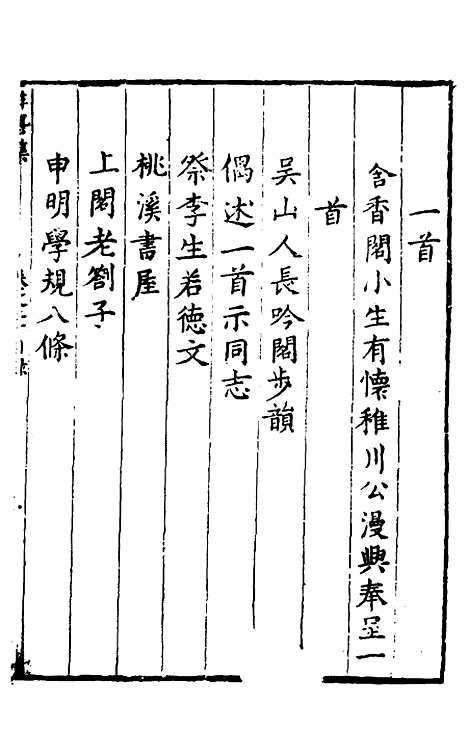 一首
含香閣小生有懷稚川公漫興奉呈一
首
吳山人長吟閣步韻
偶述一首示同志
祭李生若德文
桃溪書屋
上閣老劄子
申明學規八條